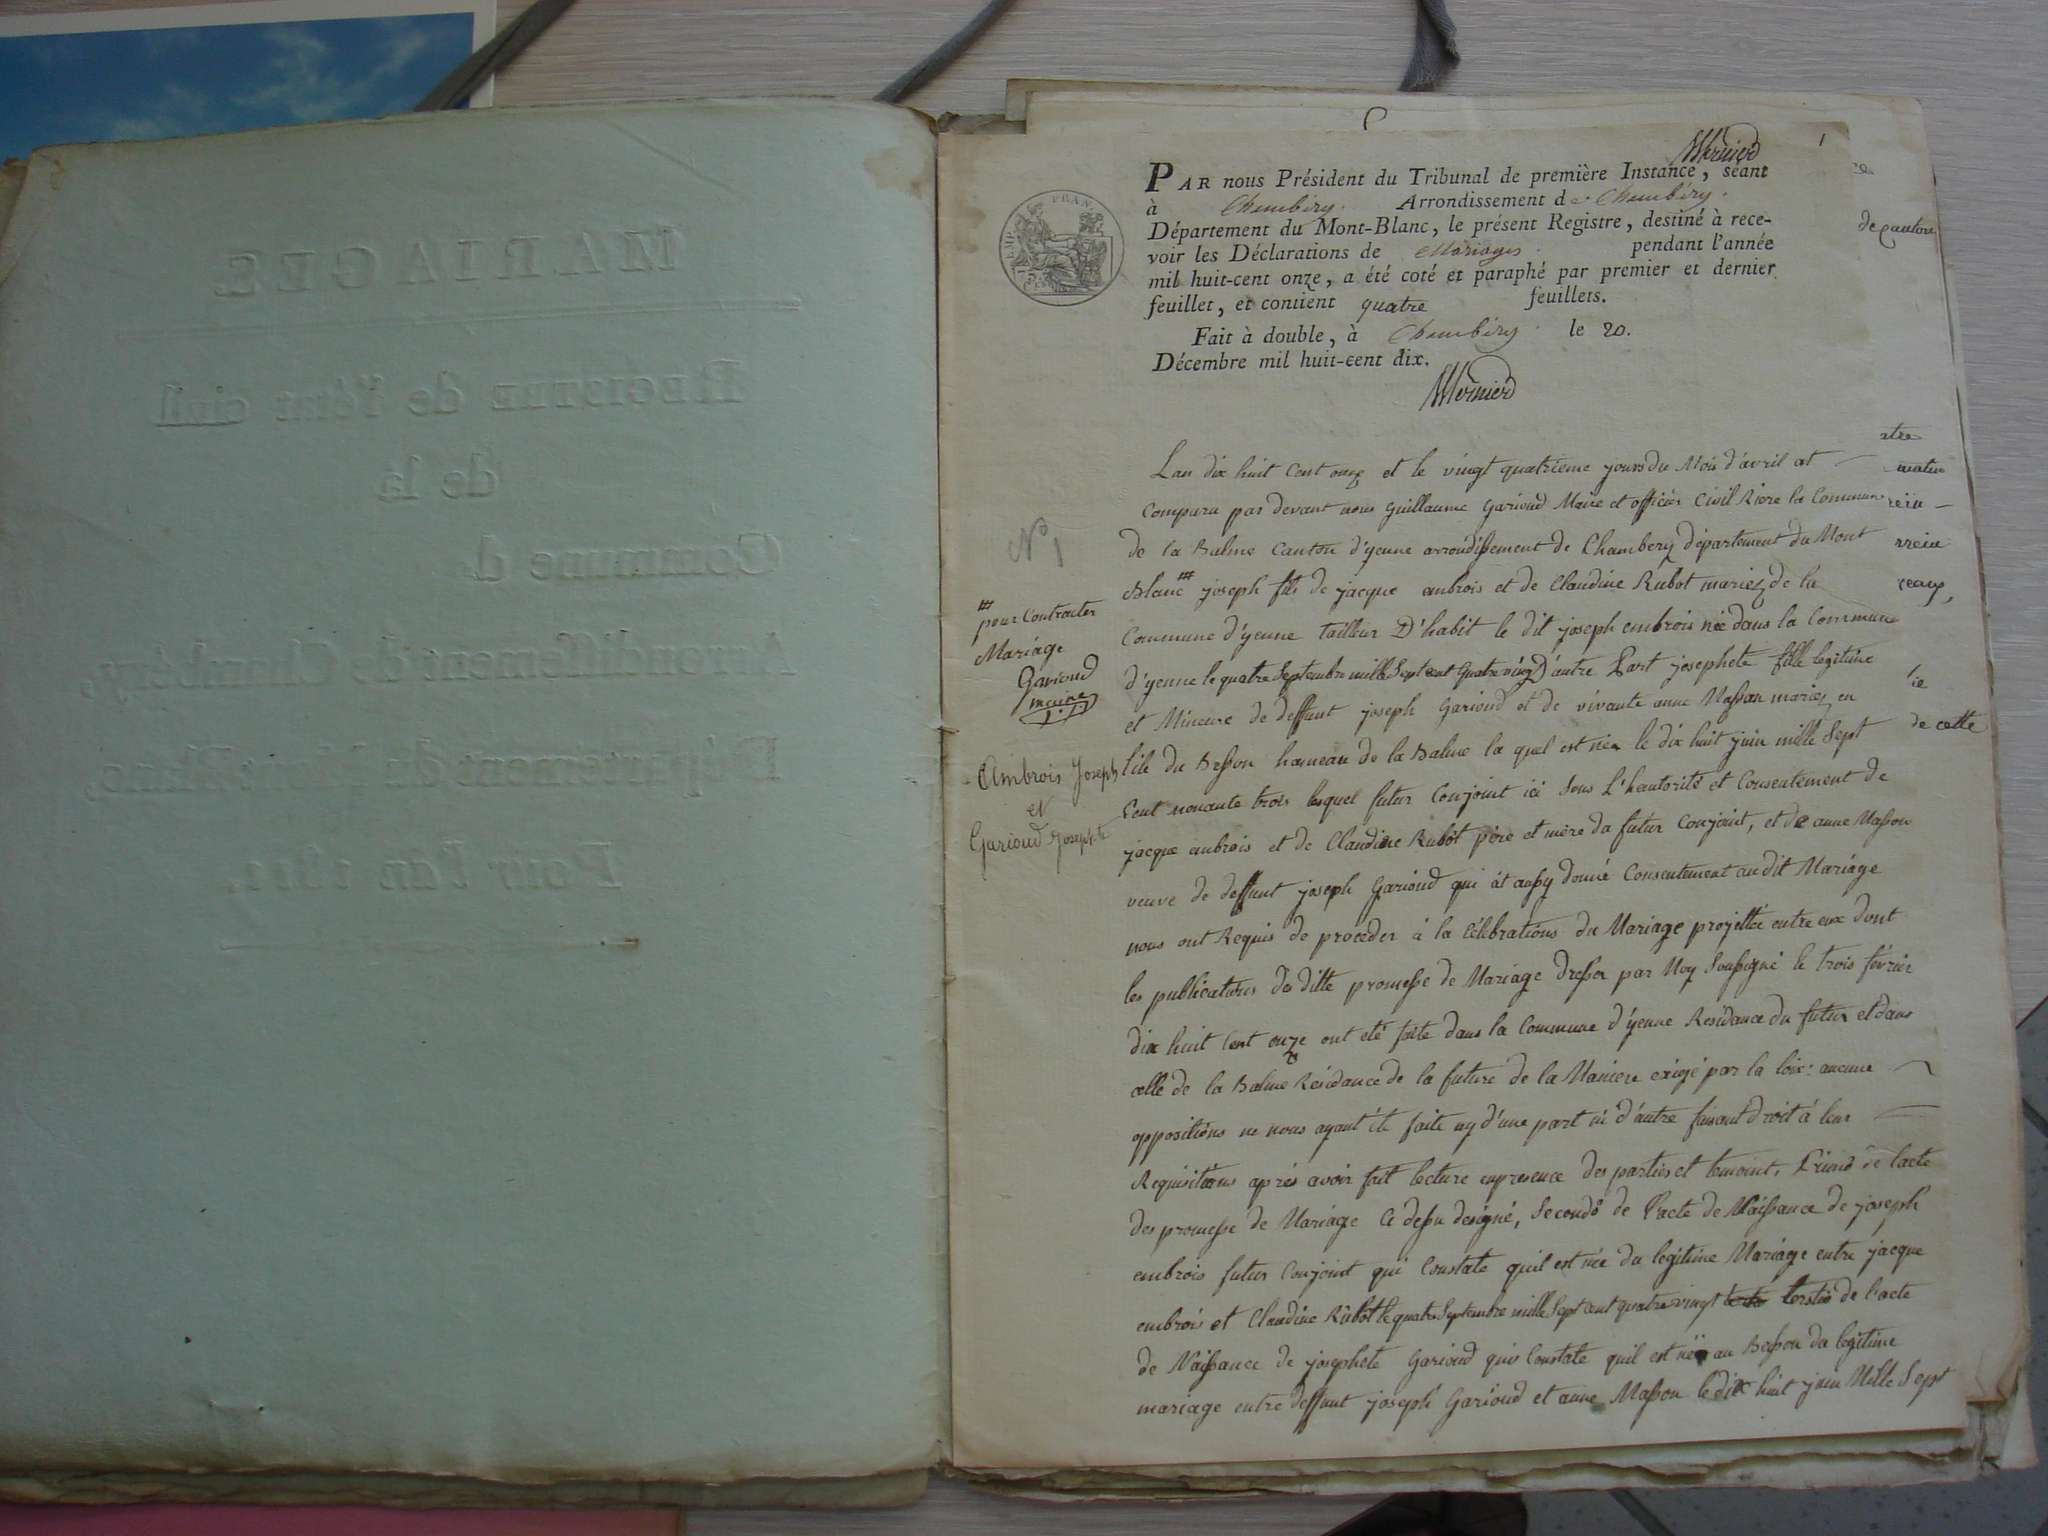 MARIAGES
REGISTRE de l'état civil
de la
Commune d
Arrondissement de Chambéry,
Département du Mont-Blanc,
Pour l'an 1811.
1
PAR nous Président du Tribunal de première Instance, séant
à Chambéry. Arrondissement de Chambéry.
Département du Mont-Blanc, le présent Registre, destiné à rece-
voir les Déclarations de Mariages pendant l'année
mil huit-cent onze, a été coté et paraphé par premier et dernier
feuillet, et contient quatre feuillets.
Fait à double, à Chambéry le 20.
Décembre mil huit-cent dix.
N° 1
pour Contracter
Mariage
Garioud
maire
Ambrois Joseph
et
Garioud Josephte
Lan dix huit Cent onze et le vingt quatrieme jours du Mois d'avril at
Comparu par devant nous guillaume garioud Maire et officier Civil Riere la Commune
de la Balme Canton d'yenne arrondissement de Chambery département du Mont
Blanc joseph fils de jacque anbrois et de Claudine Rubot mariez de la
Commune d'yenne tailleur D'habit le dit joseph embrois née dans la Commune
d'yenne le quatre Septembre mille Sept cent quatre vingt D'autre Part josephete fille legitime
et Mineure de deffunt joseph Garioud et de vivante anne Masson mariez en
l'ile du Besson hameau de la Balme la quel est née le dix huit juin mille Sept
Cent nonante trois lesquel futur Conjoint ici Sous L'hautorité et Consentement de
jacque enbrois et de Claudine Rubot père et mère du futur Conjoint, et de anne Masson
veuve de deffunt joseph Garioud qui ät aussy donné Consentement audit Mariage
nous ont Requis de proceder à la Célébrations du Mariage projettée entre eux dont
les publications des ditte promesse de Mariage dresser par Moy Soussigné le trois février
dix huit Cent onze ont eté faite dans la Commune d'yenne Residance du futur et dans
celle de la Balme Residance de la future de la Maniere exigé par la loix: aucune
oppositions ne nous ayant été faite ny d'une part ni d'autre faisant droit à leur
Requisitions après avoir fait lecture en presence des parties et temoint, Primo de l'acte
des promesse de Mariage Ce dessu designé, Secondo de l'acte de Naissance de joseph
embrois futur Conjoint qui Constate quil est née du legitime Mariage entre jacque
embrois et Claudine Rubot le quatre Septembre mille Sept cent quatre vingt terstio de l'acte
de Naissance de josephete Garioud qui Constate quil est née au Besson du legitime
mariage entre deffunt joseph Garioud et anne Masson le dix huit juin Mille Sept
de Canton
de cette